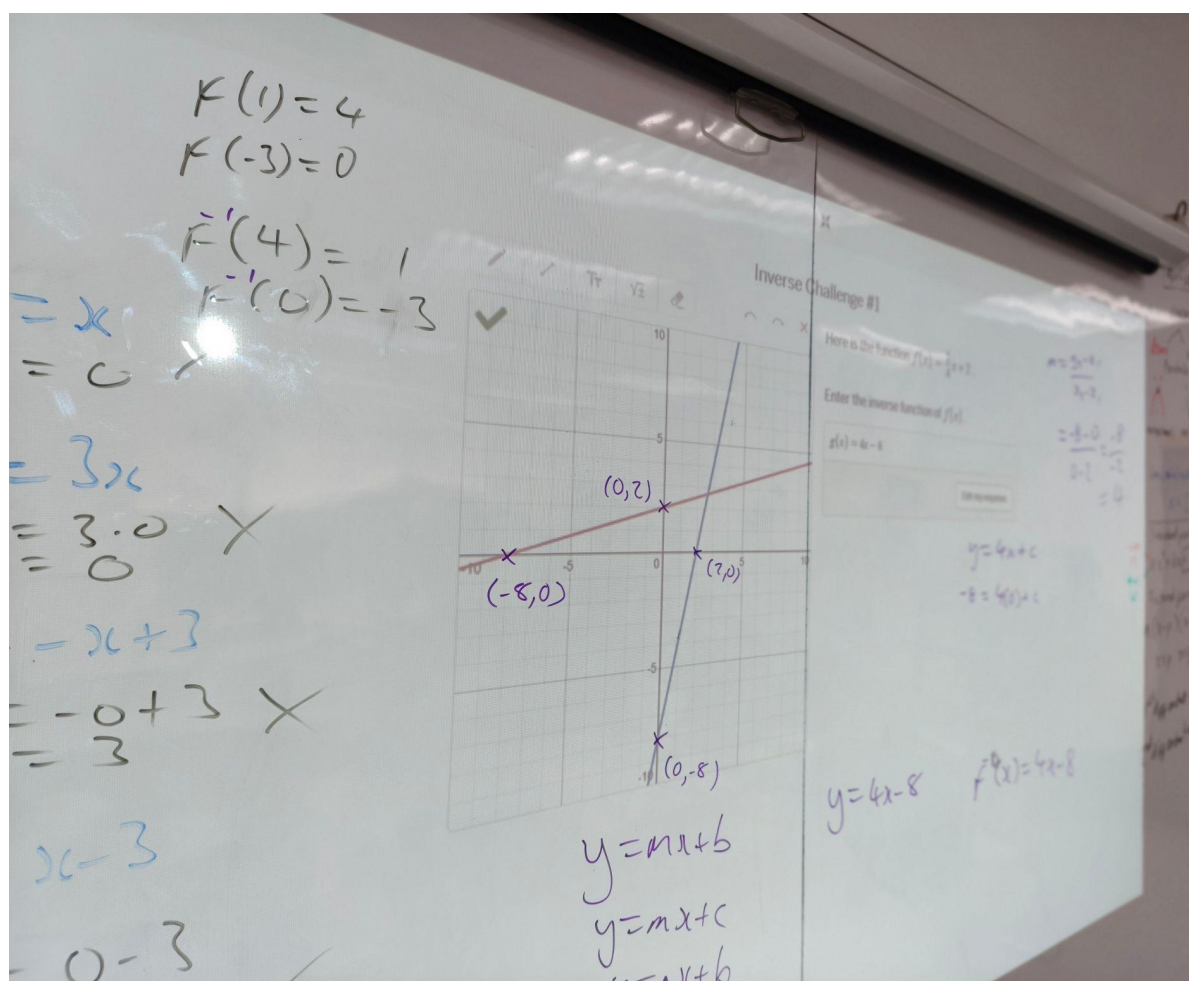 F(1)=4
F(-3)=0
F⁻¹(4)= 1
F⁻¹(0)=-3
= x
= 0 X
= 3x
= 3.0 X
= 0
- x+3
= -0+3 X
= 3
x-3
- 0-3
Tr √± 
10
5
-10 -5 0 5 10
-5
-10
(0,2)
(-8,0)
(2,0)
(0,-8)
y=mx+b
y=mx+c
Inverse Challenge #1
Here is the function f(x) =
Enter the inverse function of f(x).
g(x) = 4x - 8
Edit my response
y=4x+c
-8=4(0)+c
y=4x-8
F⁻¹(x)=4x-8